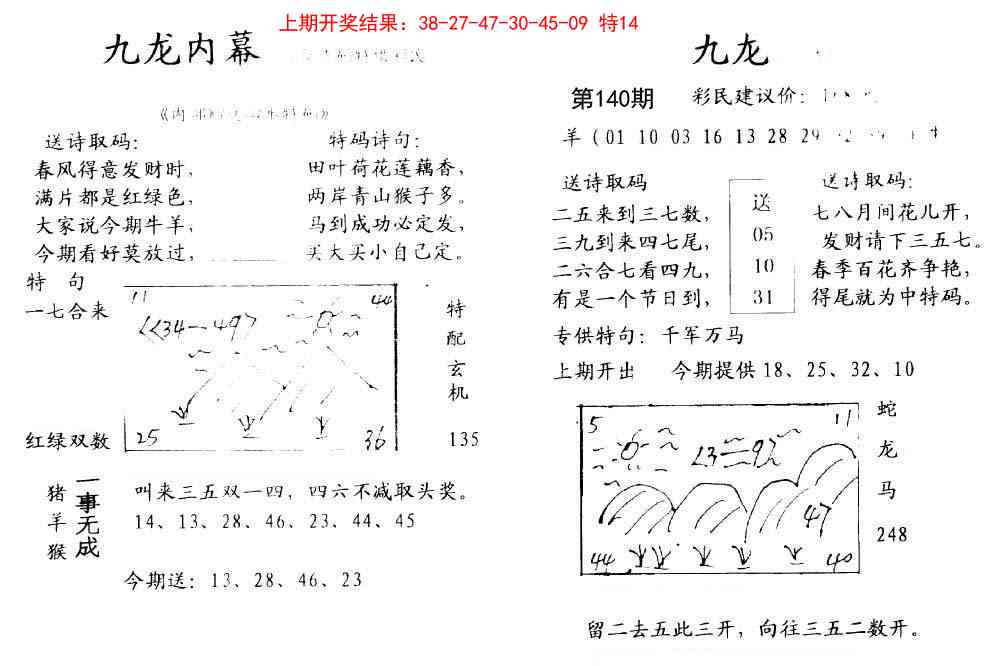 上期开奖结果：38-27-47-30-45-09 特14
九龙内幕
送诗取码：
春风得意发财时，
满片都是红绿色，
大家说今期牛羊，
今期看好莫放过，
特码诗句：
田叶荷花莲藕香，
两岸青山猴子多。
马到成功必定发，
买大买小自己定。
特 句
一七合来
红绿双数
11
44
34一49
25
36
特
配
玄
机
135
猪
羊
猴
一事无成
叫来三五双一四，四六不减取头奖。
14、13、28、46、23、44、45
今期送：13、28、46、23
九龙
第140期 彩民建议价：
羊（01 10 03 16 13 28 29
送诗取码
二五来到三七数，
三九到来四七尾，
二六合七看四九，
有是一个节日到，
送
05
10
31
送诗取码：
七八月间花儿开，
发财请下三五七。
春季百花齐争艳，
得尾就为中特码。
专供特句：千军万马
上期开出 今期提供18、25、32、10
5
11
47
44
40
蛇
龙
马
248
留二去五此三开，向往三五二数开。